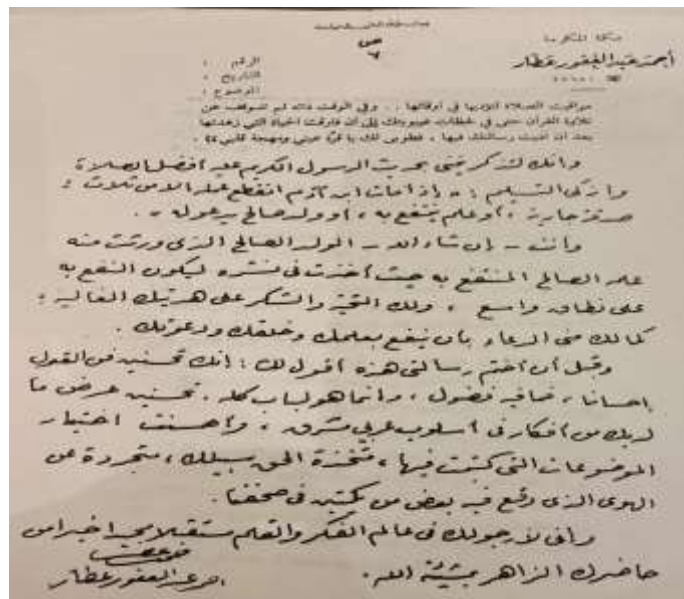 ص
٦
مكة المكرمة
أحمد عبد الغفور عطار
الرقم :
التاريخ :
الموضوع :
مواقيت الصلاة لتؤديها في أوقاتها .. وفي الوقت ذاته لم تتوقف عن
تلاوة القرآن حتى في لحظات غيبوبتك إلى أن فارقت الحياة التي زهدتها
بعد أن أديت رسالتك فيها ، فطوبى لك يا قرة عيني ومهجة قلبي ،،
وانك لتذكرينني بحديث الرسول الكريم عليه أفضل الصلاة
وأزكى التسليم : « إذا مات ابن آدم انقطع عمله الا من ثلاث :
صدقة جارية ، أو علم ينتفع به ، أو ولد صالح يدعو له » .
وأنت - إن شاء الله - الولد الصالح الذي ورثت منه
علمه الصالح المنتفع به حيث أخذت في نشره ليكون النفع به
على نطاق واسع ، ولك التحية والشكر على هديتك الغالية ،
كما لك مني الدعاء بأن ينفع بعلمك وخلقك ودعوتك .
وقبل أن أختم رسالتي هذه أقول لك : إنك تحسنين فن القول
إحسانا ، فما فيه فضول ، وانما هو لباب كله ، تحسنين عرض ما
لديك من أفكار في أسلوب عربي مشرق ، وأحسنت اختيار
الموضوعات التي كتبت فيها ، متخذة الحق سبيلك ، متجردة عن
الهوى الذي وقع فيه بعض من يكتبن في صحفنا .
واني لأرجو لك في عالم الفكر والقلم مستقبلا مجيدا خيرا من
حاضرك الزاهر بمشيئة الله .
احمد عبد الغفور عطار